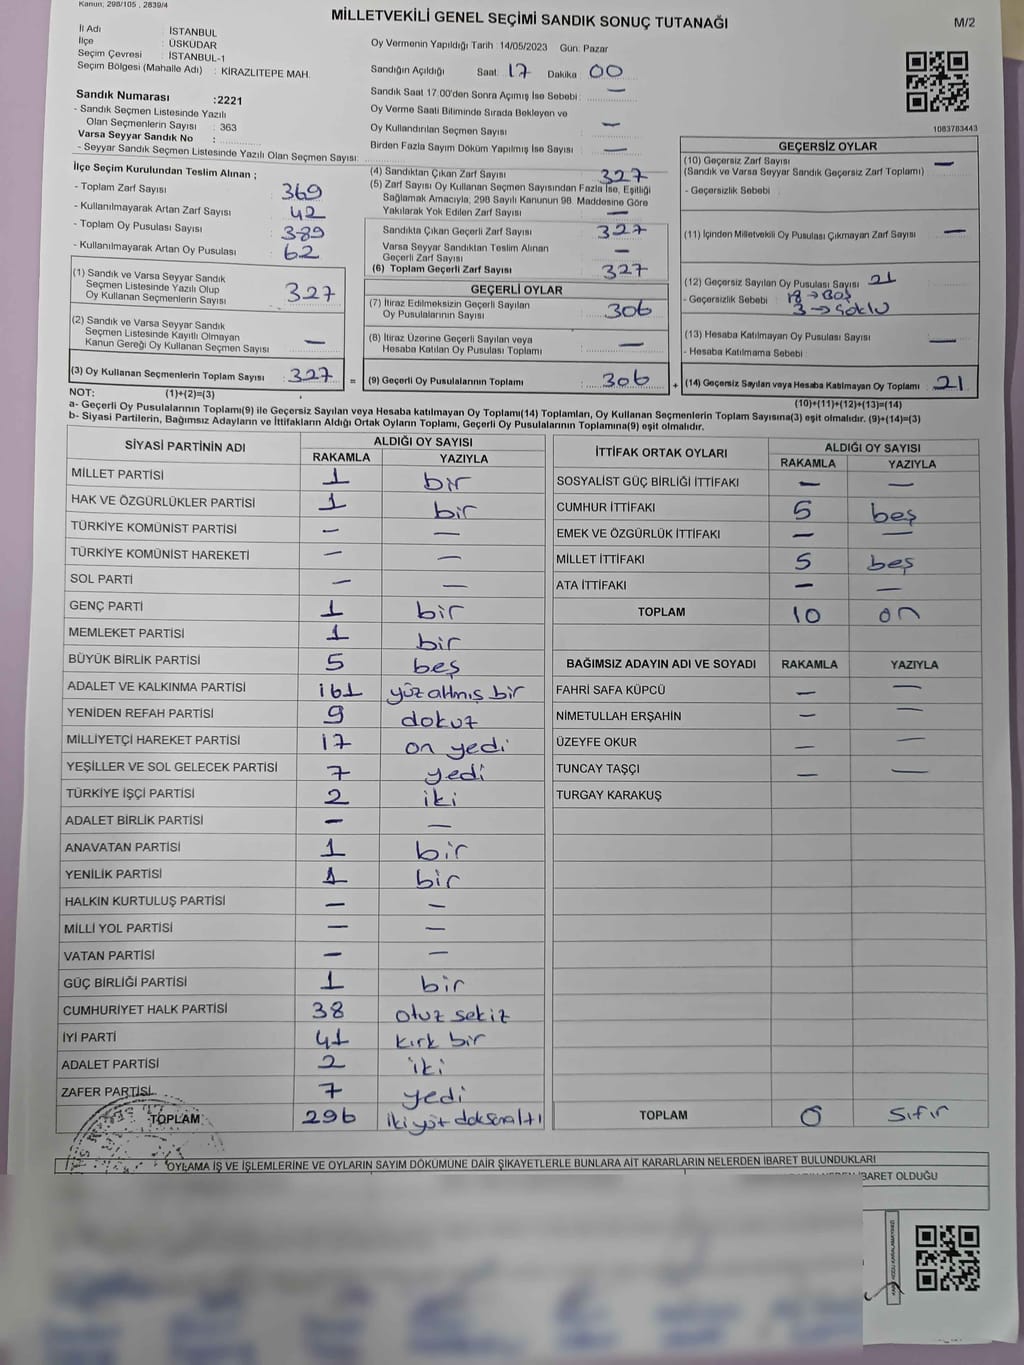 Kanun; 298/105 , 2839/4
MİLLETVEKİLİ GENEL SEÇİMİ SANDIK SONUÇ TUTANAĞI
M/2
İl Adı : İSTANBUL
İlçe : ÜSKÜDAR
Seçim Çevresi : İSTANBUL-1
Seçim Bölgesi (Mahalle Adı) : KİRAZLITEPE MAH.
Sandık Numarası :2221
- Sandık Seçmen Listesinde Yazılı
Olan Seçmenlerin Sayısı : 363
Varsa Seyyar Sandık No :
- Seyyar Sandık Seçmen Listesinde Yazılı Olan Seçmen Sayısı:
Oy Vermenin Yapıldığı Tarih : 14/05/2023 Gün: Pazar
Sandığın Açıldığı Saat: 17 Dakika : 00
Sandık Saat 17.00'den Sonra Açımış İse Sebebi : —
Oy Verme Saati Bitiminde Sırada Bekleyen ve
Oy Kullandırılan Seçmen Sayısı —
Birden Fazla Sayım Döküm Yapılmış İse Sayısı —
1083783443
İlçe Seçim Kurulundan Teslim Alınan ;
- Toplam Zarf Sayısı 369
- Kullanılmayarak Artan Zarf Sayısı 42
- Toplam Oy Pusulası Sayısı 389
- Kullanılmayarak Artan Oy Pusulası 62
(1) Sandık ve Varsa Seyyar Sandık
Seçmen Listesinde Yazılı Olup
Oy Kullanan Seçmenlerin Sayısı 327
(2) Sandık ve Varsa Seyyar Sandık
Seçmen Listesinde Kayıtlı Olmayan
Kanun Gereği Oy Kullanan Seçmen Sayısı —
(3) Oy Kullanan Seçmenlerin Toplam Sayısı : 327 =
(4) Sandıktan Çıkan Zarf Sayısı 327
(5) Zarf Sayısı Oy Kullanan Seçmen Sayısından Fazla İse, Eşitliği
Sağlamak Amacıyla; 298 Sayılı Kanunun 98. Maddesine Göre
Yakılarak Yok Edilen Zarf Sayısı —
Sandıkta Çıkan Geçerli Zarf Sayısı 327
Varsa Seyyar Sandıktan Teslim Alınan
Geçerli Zarf Sayısı —
(6) Toplam Geçerli Zarf Sayısı 327
GEÇERLİ OYLAR
(7) İtiraz Edilmeksizin Geçerli Sayılan
Oy Pusulalarının Sayısı : 306
(8) İtiraz Üzerine Geçerli Sayılan veya
Hesaba Katılan Oy Pusulası Toplamı —
(9) Geçerli Oy Pusulalarının Toplamı : 306 +
GEÇERSİZ OYLAR
(10) Geçersiz Zarf Sayısı —
(Sandık ve Varsa Seyyar Sandık Geçersiz Zarf Toplamı)
- Geçersizlik Sebebi :
(11) İçinden Milletvekili Oy Pusulası Çıkmayan Zarf Sayısı —
(12) Geçersiz Sayılan Oy Pusulası Sayısı 21
- Geçersizlik Sebebi : 18 → Boş
3 → Çoklu
(13) Hesaba Katılmayan Oy Pusulası Sayısı —
- Hesaba Katılmama Sebebi
(14) Geçersiz Sayılan veya Hesaba Katılmayan Oy Toplamı 21
NOT: (1)+(2)=(3)
(10)+(11)+(12)+(13)=(14)
a- Geçerli Oy Pusulalarının Toplamı(9) ile Geçersiz Sayılan veya Hesaba katılmayan Oy Toplamı(14) Toplamları, Oy Kullanan Seçmenlerin Toplam Sayısına(3) eşit olmalıdır. (9)+(14)=(3)
b- Siyasi Partilerin, Bağımsız Adayların ve İttifakların Aldığı Ortak Oyların Toplamı, Geçerli Oy Pusulalarının Toplamına(9) eşit olmalıdır.
SİYASİ PARTİNİN ADI ALDIĞI OY SAYISI
RAKAMLA YAZIYLA
MİLLET PARTİSİ 1 bir
HAK VE ÖZGÜRLÜKLER PARTİSİ 1 bir
TÜRKİYE KOMÜNİST PARTİSİ — —
TÜRKİYE KOMÜNİST HAREKETİ — —
SOL PARTİ — —
GENÇ PARTİ 1 bir
MEMLEKET PARTİSİ 1 bir
BÜYÜK BİRLİK PARTİSİ 5 beş
ADALET VE KALKINMA PARTİSİ 161 yüz altmış bir
YENİDEN REFAH PARTİSİ 9 dokuz
MİLLİYETÇİ HAREKET PARTİSİ 17 on yedi
YEŞİLLER VE SOL GELECEK PARTİSİ 7 yedi
TÜRKİYE İŞÇİ PARTİSİ 2 iki
ADALET BİRLİK PARTİSİ — —
ANAVATAN PARTİSİ 1 bir
YENİLİK PARTİSİ 1 bir
HALKIN KURTULUŞ PARTİSİ — —
MİLLİ YOL PARTİSİ — —
VATAN PARTİSİ — —
GÜÇ BİRLİĞİ PARTİSİ 1 bir
CUMHURİYET HALK PARTİSİ 38 otuz sekiz
İYİ PARTİ 41 kırk bir
ADALET PARTİSİ 2 iki
ZAFER PARTİSİ 7 yedi
TOPLAM 296 iki yüz doksan altı
İTTİFAK ORTAK OYLARI ALDIĞI OY SAYISI
RAKAMLA YAZIYLA
SOSYALİST GÜÇ BİRLİĞİ İTTİFAKI — —
CUMHUR İTTİFAKI 5 beş
EMEK VE ÖZGÜRLÜK İTTİFAKI — —
MİLLET İTTİFAKI 5 beş
ATA İTTİFAKI — —
TOPLAM 10 on
BAĞIMSIZ ADAYIN ADI VE SOYADI RAKAMLA YAZIYLA
FAHRİ SAFA KÜPCÜ — —
NİMETULLAH ERŞAHİN — —
ÜZEYFE OKUR — —
TUNCAY TAŞÇI — —
TURGAY KARAKUŞ
TOPLAM 0 sıfır
OYLAMA İŞ VE İŞLEMLERİNE VE OYLARIN SAYIM DÖKÜMÜNE DAİR ŞİKAYETLERLE BUNLARA AİT KARARLARIN NELERDEN İBARET BULUNDUKLARI
İBARET OLDUĞU